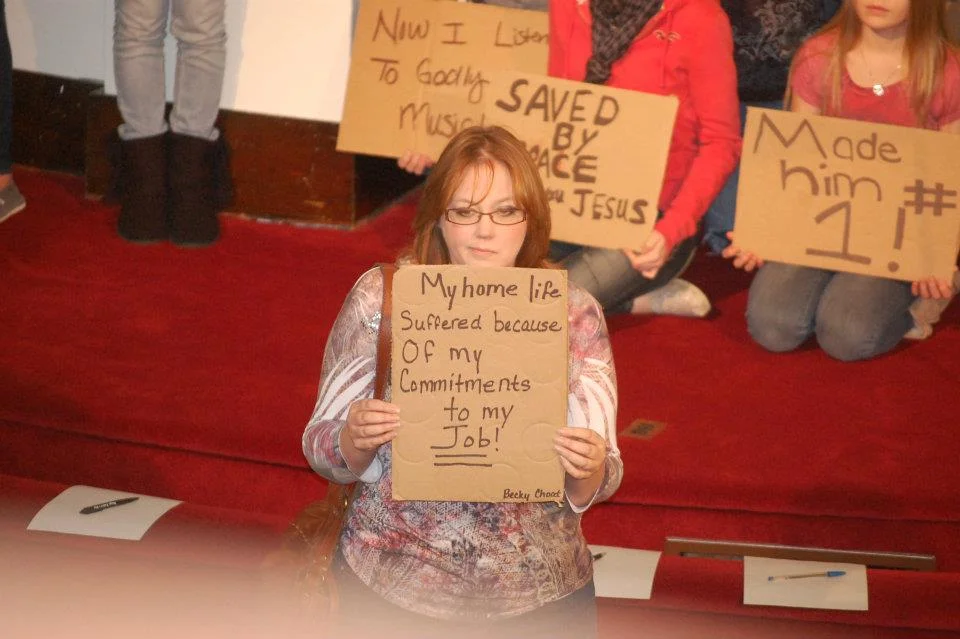 Now I Listen
To Godly
Music!
SAVED
BY
JESUS
Made
him #
1!
My home life
Suffered because
Of my
Commitments
to my
Job!
Becky